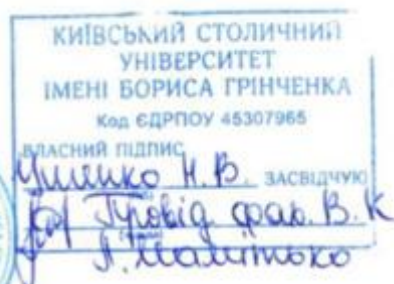 КИЇВСЬКИЙ СТОЛИЧНИЙ
УНІВЕРСИТЕТ
ІМЕНІ БОРИСА ГРІНЧЕНКА
Код ЄДРПОУ 45307965
ВЛАСНИЙ ПІДПИС
Н. В. ЗАСВІДЧУЮ
Провід. фах. В. К